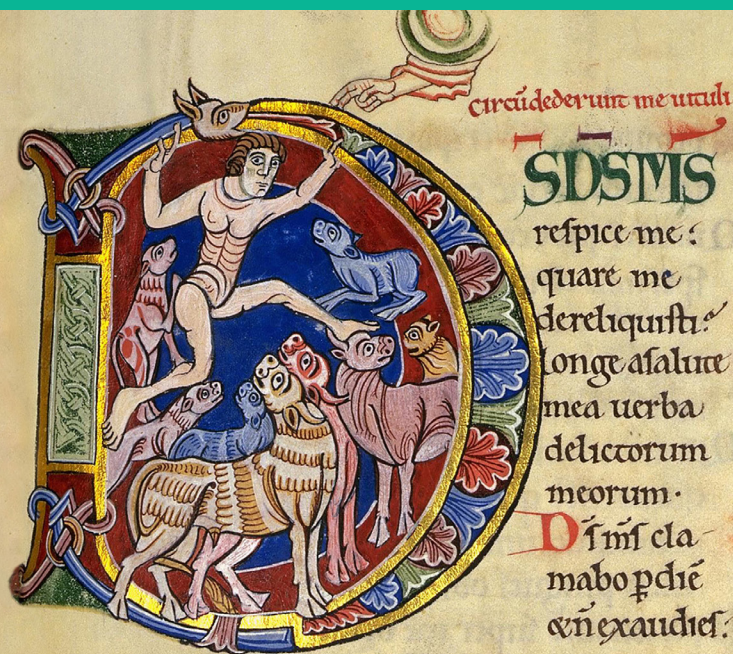 circūdederunt me uituli
SD̄SM̄S
respice me:
quare me
dereliquisti?
longe asalute
mea uerba
delictorum
meorum·
D̄s m̄s cla
mabo p̱ diē
&n̄ exaudies: